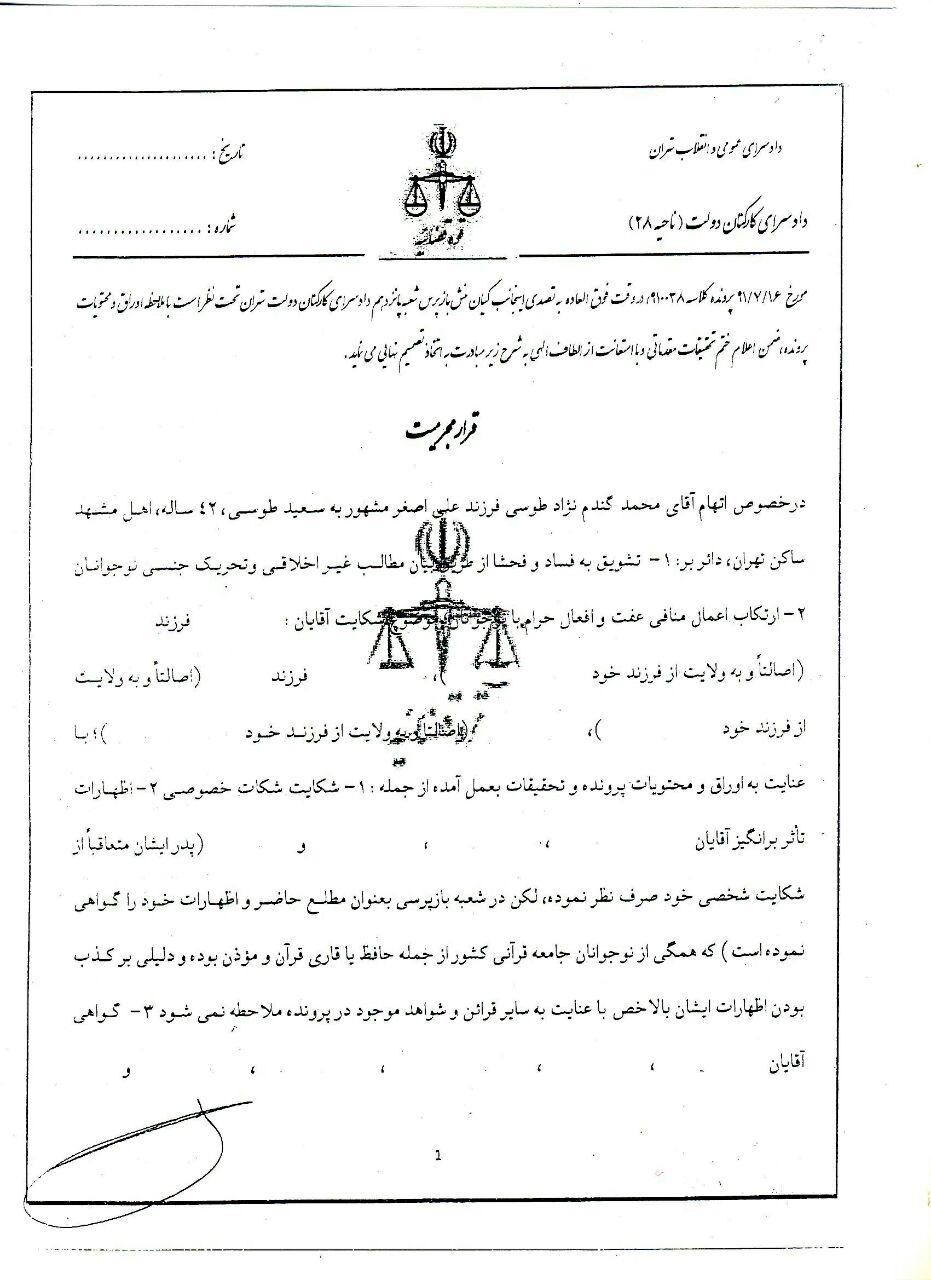 دادسرای عمومی و انقلاب تهران
تاریخ : .....................
دادسرای کارکنان دولت (ناحیه ۲۸)
شماره : ....................
قوه قضائیه
مورخ ۹۱/۷/۱۶ پرونده کلاسه ۹۱۰۰۳۸، در وقت فوق العاده به تصدی اینجانب کیان منش بازپرس شعبه پانزدهم دادسرای کارکنان دولت تهران تحت نظر است با ملاحظه اوراق و محتویات
پرونده، ضمن اعلام ختم تحقیقات مقدماتی و با استعانت از الطاف الهی به شرح زیر مبادرت به اتخاذ تصمیم نهایی می نماید .
قرار مجرمیت
درخصوص اتهام آقای محمد گندم نژاد طوسی فرزند علی اصغر مشهور به سعید طوسی، ۴۲ ساله، اهل مشهد
ساکن تهران، دائر بر: ۱- تشویق به فساد و فحشا از طریق بیان مطالب غیر اخلاقی وتحریک جنسی نوجوانان
۲- ارتکاب اعمال منافی عفت و افعال حرام با نوجوانان موضوع شکایت آقایان : فرزند
(اصالتاً و به ولایت از فرزند خود ، فرزند (اصالتاً و به ولایت
از فرزند خود )، (اصالتاً و به ولایت از فرزند خود )؛ با
عنایت به اوراق و محتویات پرونده و تحقیقات بعمل آمده از جمله : ۱- شکایت شکات خصوصی ۲- اظهارات
تأثر برانگیز آقایان ، ، و (پدر ایشان متعاقباً از
شکایت شخصی خود صرف نظر نموده، لکن در شعبه بازپرسی بعنوان مطلع حاضر و اظهارات خود را گواهی
نموده است ) که همگی از نوجوانان جامعه قرآنی کشور از جمله حافظ یا قاری قرآن و مؤذن بوده و دلیلی بر کذب
بودن اظهارات ایشان بالاخص با عنایت به سایر قرائن و شواهد موجود در پرونده ملاحظه نمی شود ۳- گواهی
آقایان ، ، ، ، و
1